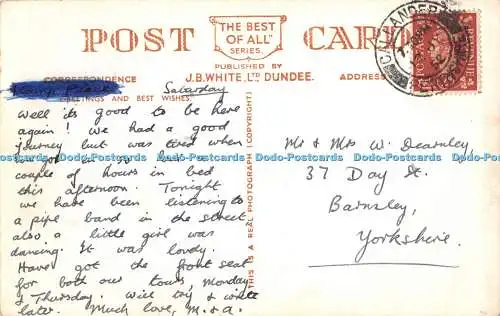 POST CARD
THE BEST
OF ALL
SERIES.
PUBLISHED BY
J.B. WHITE, LTD DUNDEE.
CORRESPONDENCE
ADDRESS
GREETINGS AND BEST WISHES.
Saturday
Well it's good to be here
again! We had a good
journey but was tired when
we got in so had a
couple of hours in bed
this afternoon. Tonight
we have been listening to
a pipe band in the street
also a little girl was
dancing. It was lovely.
Have got the front seat
for both our tours, Monday
& Thursday. Will try & write
later. Much love, M. & A.
THIS IS A REAL PHOTOGRAPH (COPYRIGHT)
Mr & Mrs W. Dearnley,
37 Day St.
Barnsley,
Yorkshire.
CALLANDER
Dodo-Postcards Dodo-Postcards Dodo-Postcards Dodo-Postcards Dodo-Postcards Dodo-Postcards